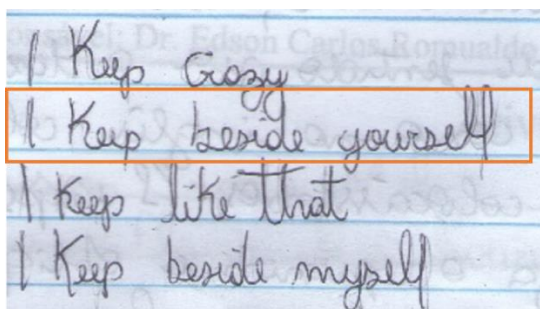 onsável: Dr. Edson Carlos Romualdo
I Keep Crazy
I Keep beside yourself
I Keep like that
I Keep beside myself